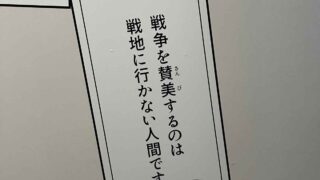 戦争を賛美するのは
戦地に行かない人間です